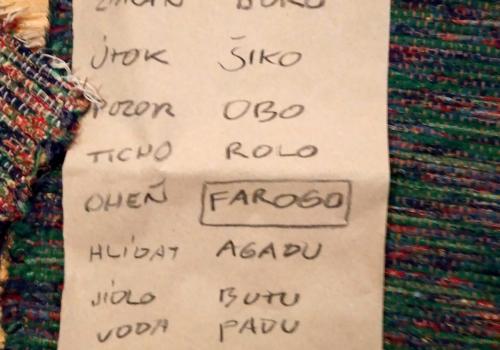 ÚTOK ŠIKO
POZOR OBO
TICHO ROLO
OHEŇ FAROGO
HLÍDAT AGADU
JÍDLO BUTU
VODA PADU